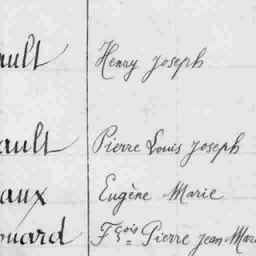 ault Henry Joseph
ault Pierre Louis Joseph
aux Eugène Marie
ouard Fçois Pierre Jean Mar